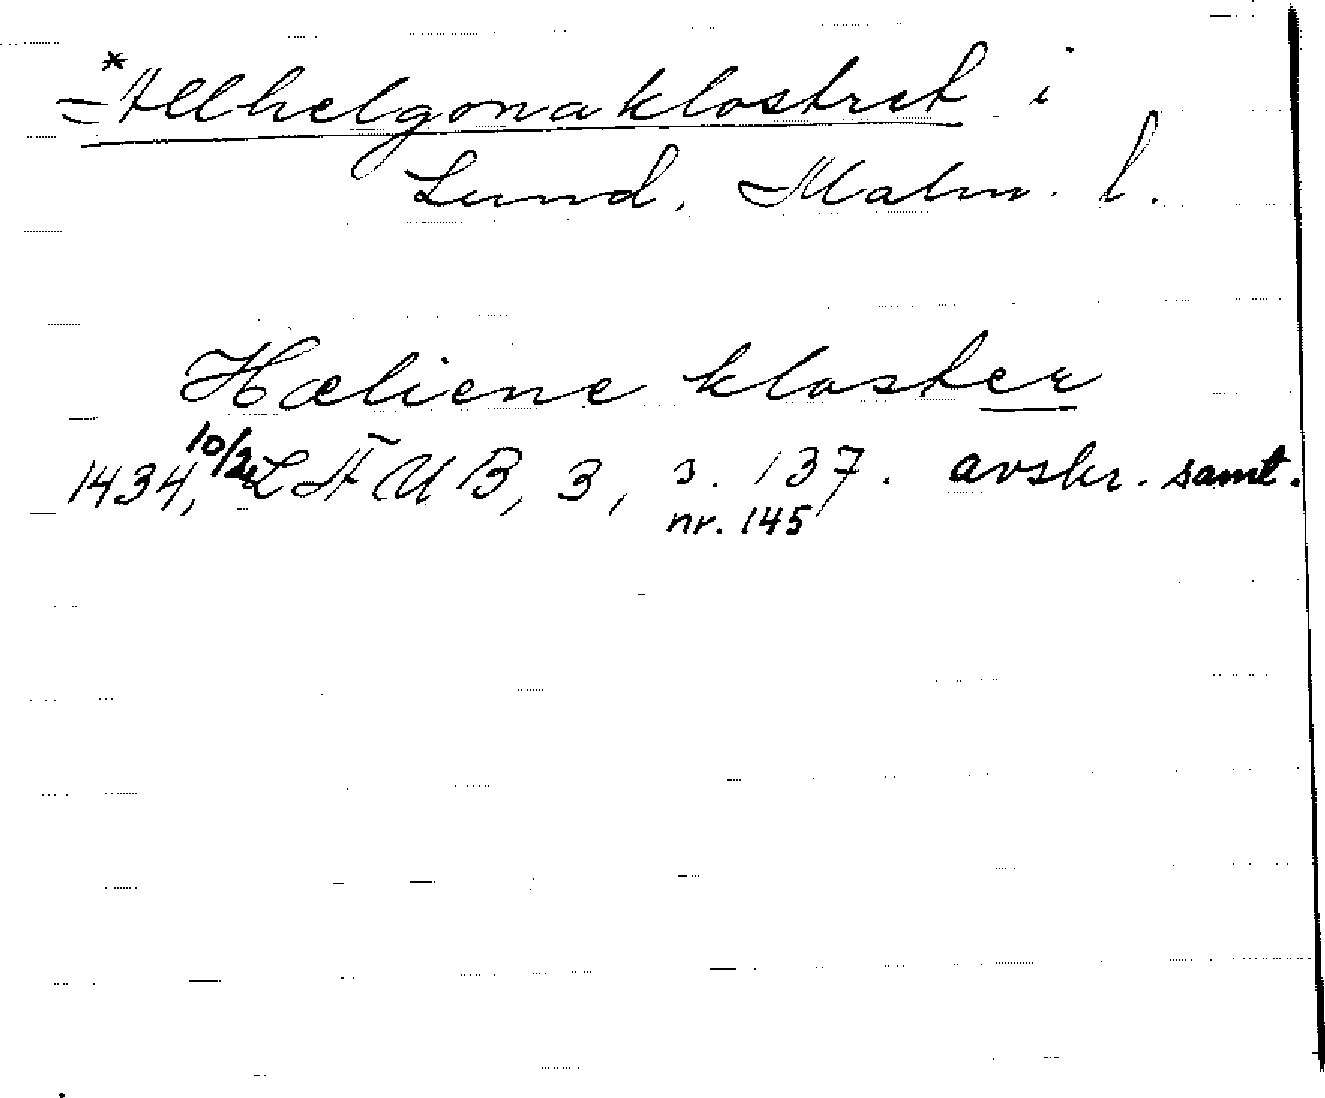 *Allhelgonaklostret i
Lund, Malm. l.
Hæliene kloster
1434, 10/2 LÄUB, 3, s. 137. avskr. samt.
nr. 145